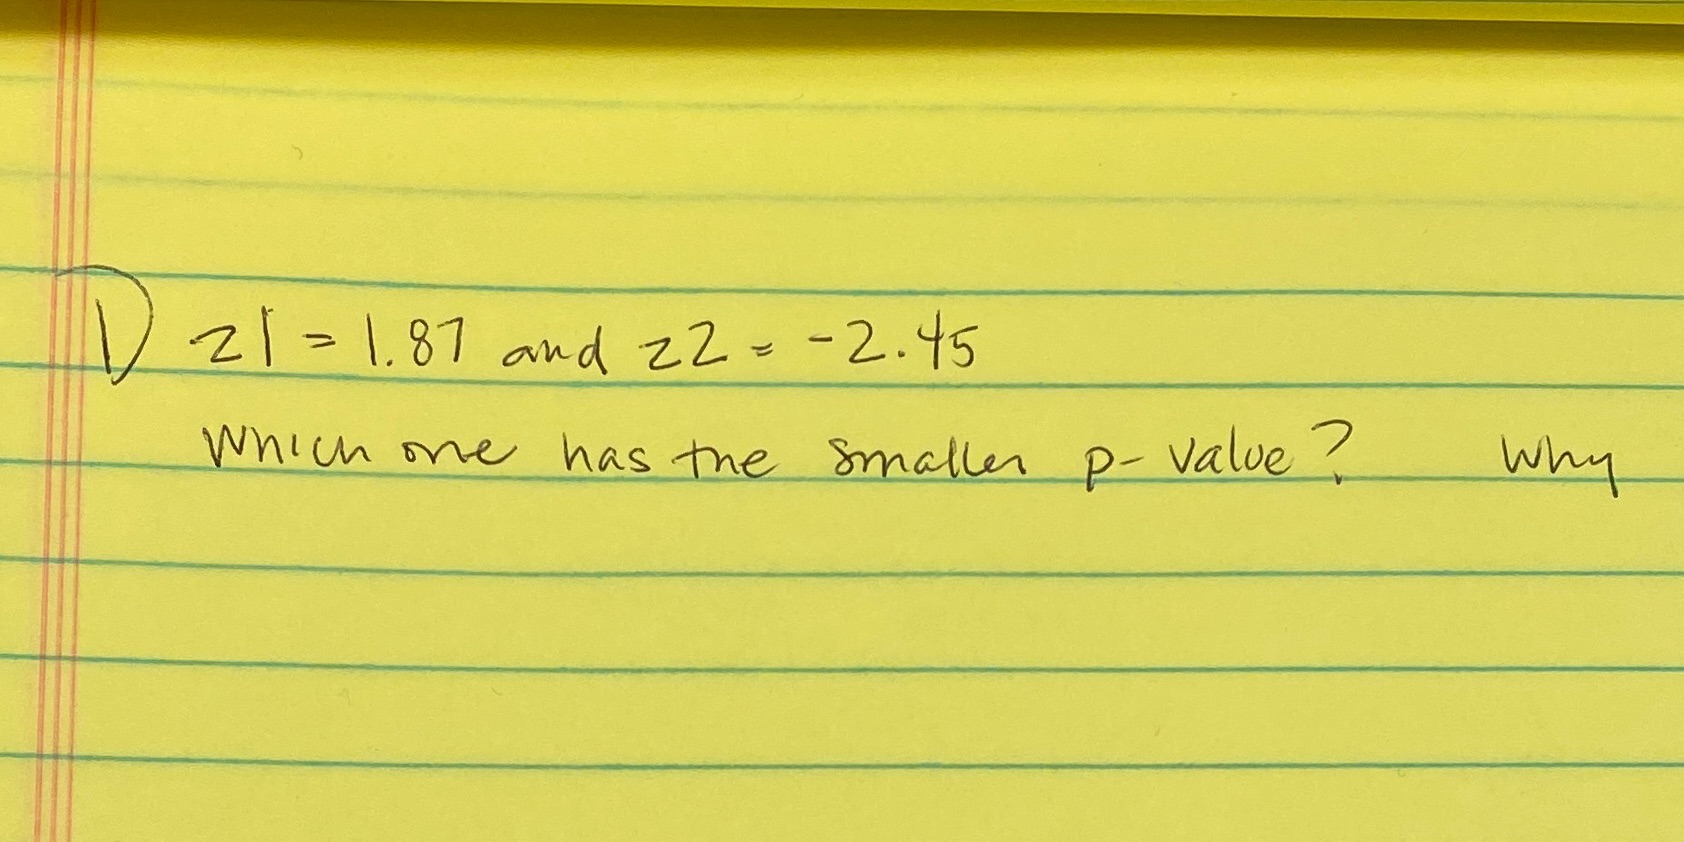 1) z1 = 1.87 and z2 = -2.45
Which one has the smaller p-value? Why